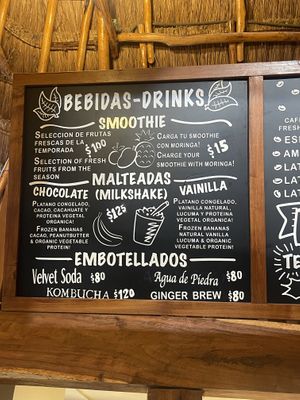 BEBIDAS-DRINKS
SMOOTHIE
SELECCION DE FRUTAS
FRESCAS DE LA
TEMPORADA
$100
SELECTION OF FRESH
FRUITS FROM THE
SEASON
CARGA TU SMOOTHIE
CON MORINGA!
$15
CHARGE YOUR
SMOOTHIE WITH MORINGA!
MALTEADAS
(MILKSHAKE)
$125
CHOCOLATE
PLATANO CONGELADO,
CACAO, CACAHUATE Y
PROTEINA VEGETAL
ORGANICA!
FROZEN BANANAS
CACAO, PEANUTBUTTER
& ORGANIC VEGETABLE
PROTEIN!
VAINILLA
PLATANO CONGELADO,
VAINILLA NATURAL,
LUCUMA Y PROTEINA
VEGETAL ORGANICA!
FROZEN BANANAS
NATURAL VANILLA
LUCUMA & ORGANIC
VEGETABLE PROTEIN!
EMBOTELLADOS
Velvet Soda $80
Agua de Piedra $80
KOMBUCHA $120
GINGER BREW $80
CAFE
ES
AM
LAT
LAT
TE